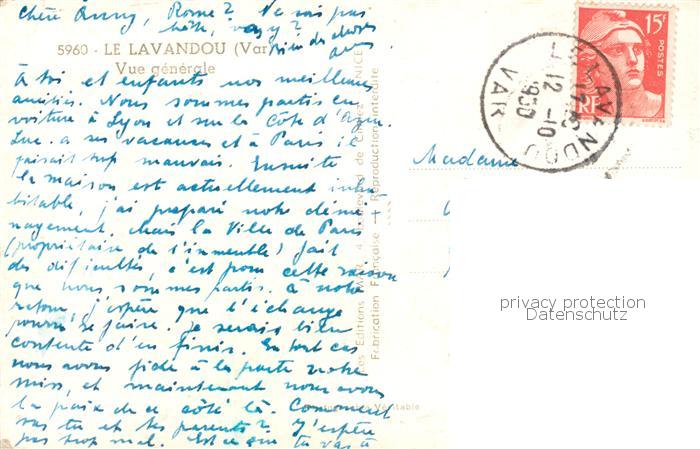 Chère Rome? Ne sais pas
rien de
5960 - LE LAVANDOU (Var
Vue générale
À toi et enfants nos meilleures
amitiés. Nous sommes partis en
voiture à Lyon et sur la Côte d'Azur.
Luc. a ses vacances et à Paris il
faisait trop mauvais. Ensuite
la maison est actuellement inha
bitable, j'ai préparé notre démé
nagement. Mais la Ville de Paris
(propriétaire de l'immeuble) fait
des difficultés, c'est pour cette raison
que nous sommes partis. À notre
retour, j'espère que l'échange
pourra se faire. Je serais bien
contente d'en finir. En tout cas
nous avons fiché à la porte notre
miss, et maintenant nous avons
la paix de ce côté là. Comment
vas tu et tes parents? J'espère
pas trop mal. Est ce que tu vas à
Les Éditions NICE
Fabrication Française - Reproduction interdite
Véritable
15F
POSTES
RF
LAVANDOU
12 -10
1950
VAR
Madame
privacy protection
Datenschutz